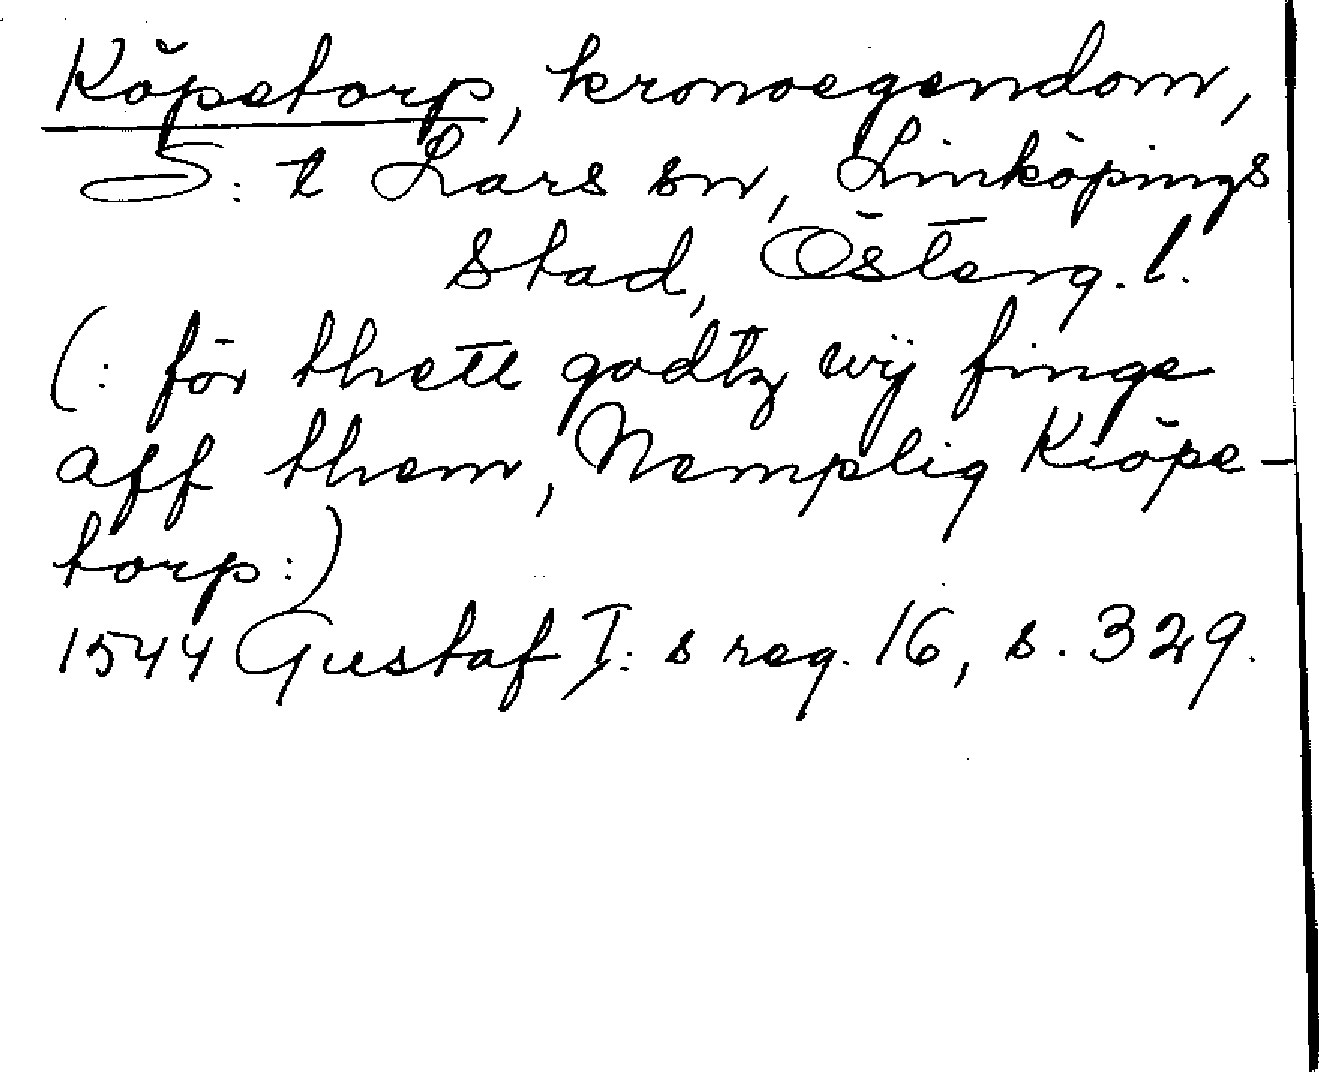 Köpetorp, kronoegendom,
S:t Lars sn, Linköpings
stad, Österg. l.
(: för thett godtz wij finge
aff them, Nemplig Kiöpe-
torp:)
1544 Gustaf I:s reg. 16, s. 329.